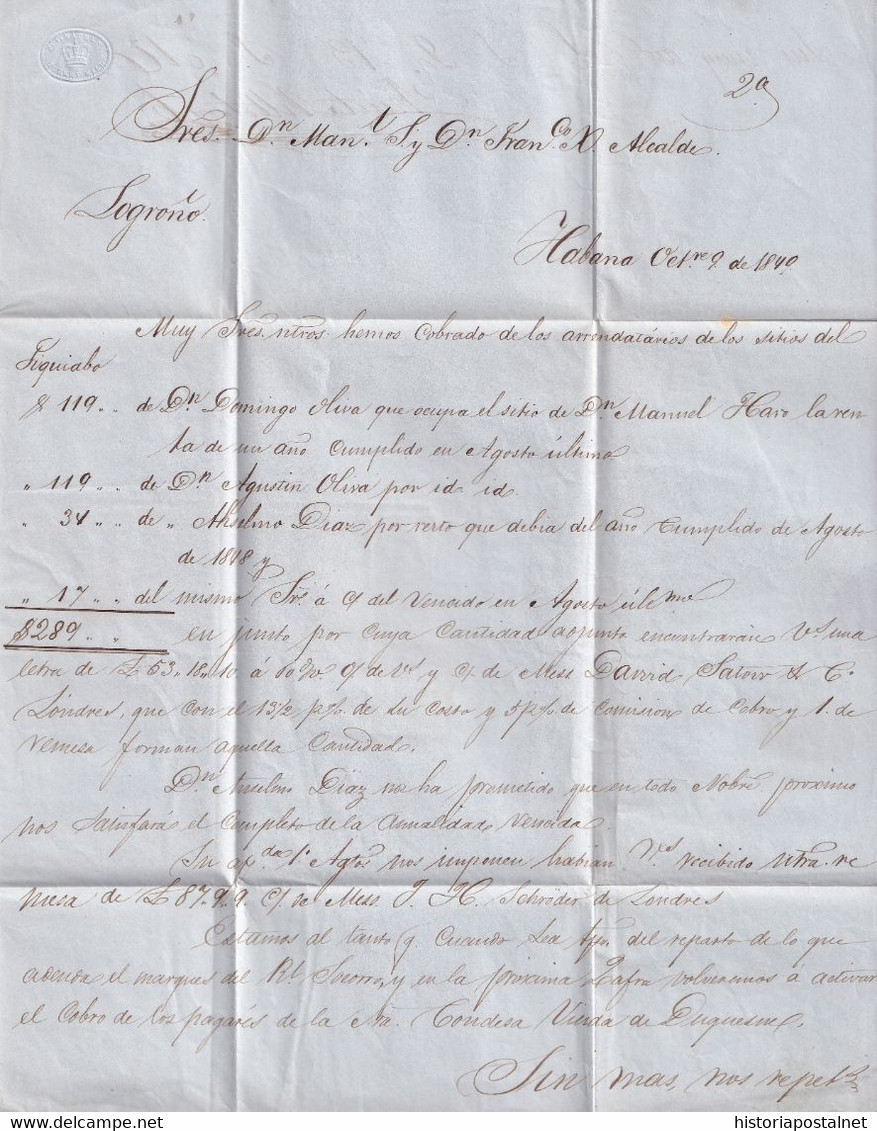 2ª
Sres. Dn. Manl. S. y Dn. Franco. X. Alcalde.
Logroño.
Habana Octre. 9. de 1849.
Muy Sres. ntros. hemos Cobrado de los arrendatários de los sitios del
Siguiabo
$ 119 „ „ de Dn. Domingo Oliva que ocupa el sitio de Dn. Manuel Haro la ren
ta de un año Cumplido en Agosto último
„ 119 „ „ de Dn. Agustin Oliva por id. id.
„ 34 „ „ de „ Anselmo Diaz por resto que debia del año Cumplido de Agosto
de 1848 y
„ 17 „ „ del mismo Sr. á c/ del Vencido en Agosto últmo
$289 „ „ en junto por cuya Cantidad adjunto encontrarán Vs. una
letra de £ 53 „ 18 „ 10 á 60 d/v c/ de Vs y c/. de Mess David &  C.º
Londres, que con el 13 1/2 p% de su Costo y 5 p% de Comision de Cobro y 1. de
remesa forman aquella Cantidad.
Dn. Anselmo Diaz nos ha prometido que en todo Nobre. proximo
nos Satisfará el Completo de la Anualidad Vencida.
Su apda. 1º Agtos nos imponen habian Vs. recibido ntra. re
mesa de £ 87.9.9. c/. de Mess. J. H. Schröder de Londres
Estamos al tanto q. Cuando Sea del reparto de lo que
adeuda el marques del Rl. Socorro, y en la próxima Zafra volveremos á activar
el Cobro de los pagarés de la Sra. Condesa Viuda de Duquesne.
Sin mas, nos repet
www.delcampe.net
historiapostalnet